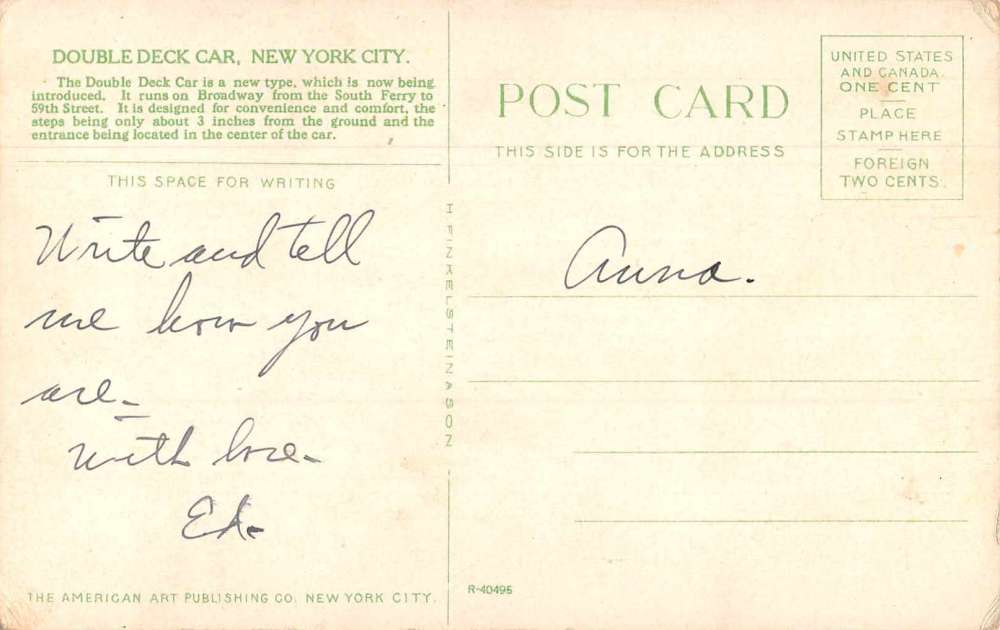 DOUBLE DECK CAR, NEW YORK CITY.
The Double Deck Car is a new type, which is now being
introduced. It runs on Broadway from the South Ferry to
59th Street. It is designed for convenience and comfort, the
steps being only about 3 inches from the ground and the
entrance being located in the center of the car.
THIS SPACE FOR WRITING
Write and tell
me how you
are-
with love-
Ed-
THE AMERICAN ART PUBLISHING CO. NEW YORK CITY.
H FINKELSTEIN & SON
POST CARD
THIS SIDE IS FOR THE ADDRESS
UNITED STATES
AND CANADA
ONE CENT
PLACE
STAMP HERE
FOREIGN
TWO CENTS.
Anna.
R-40495